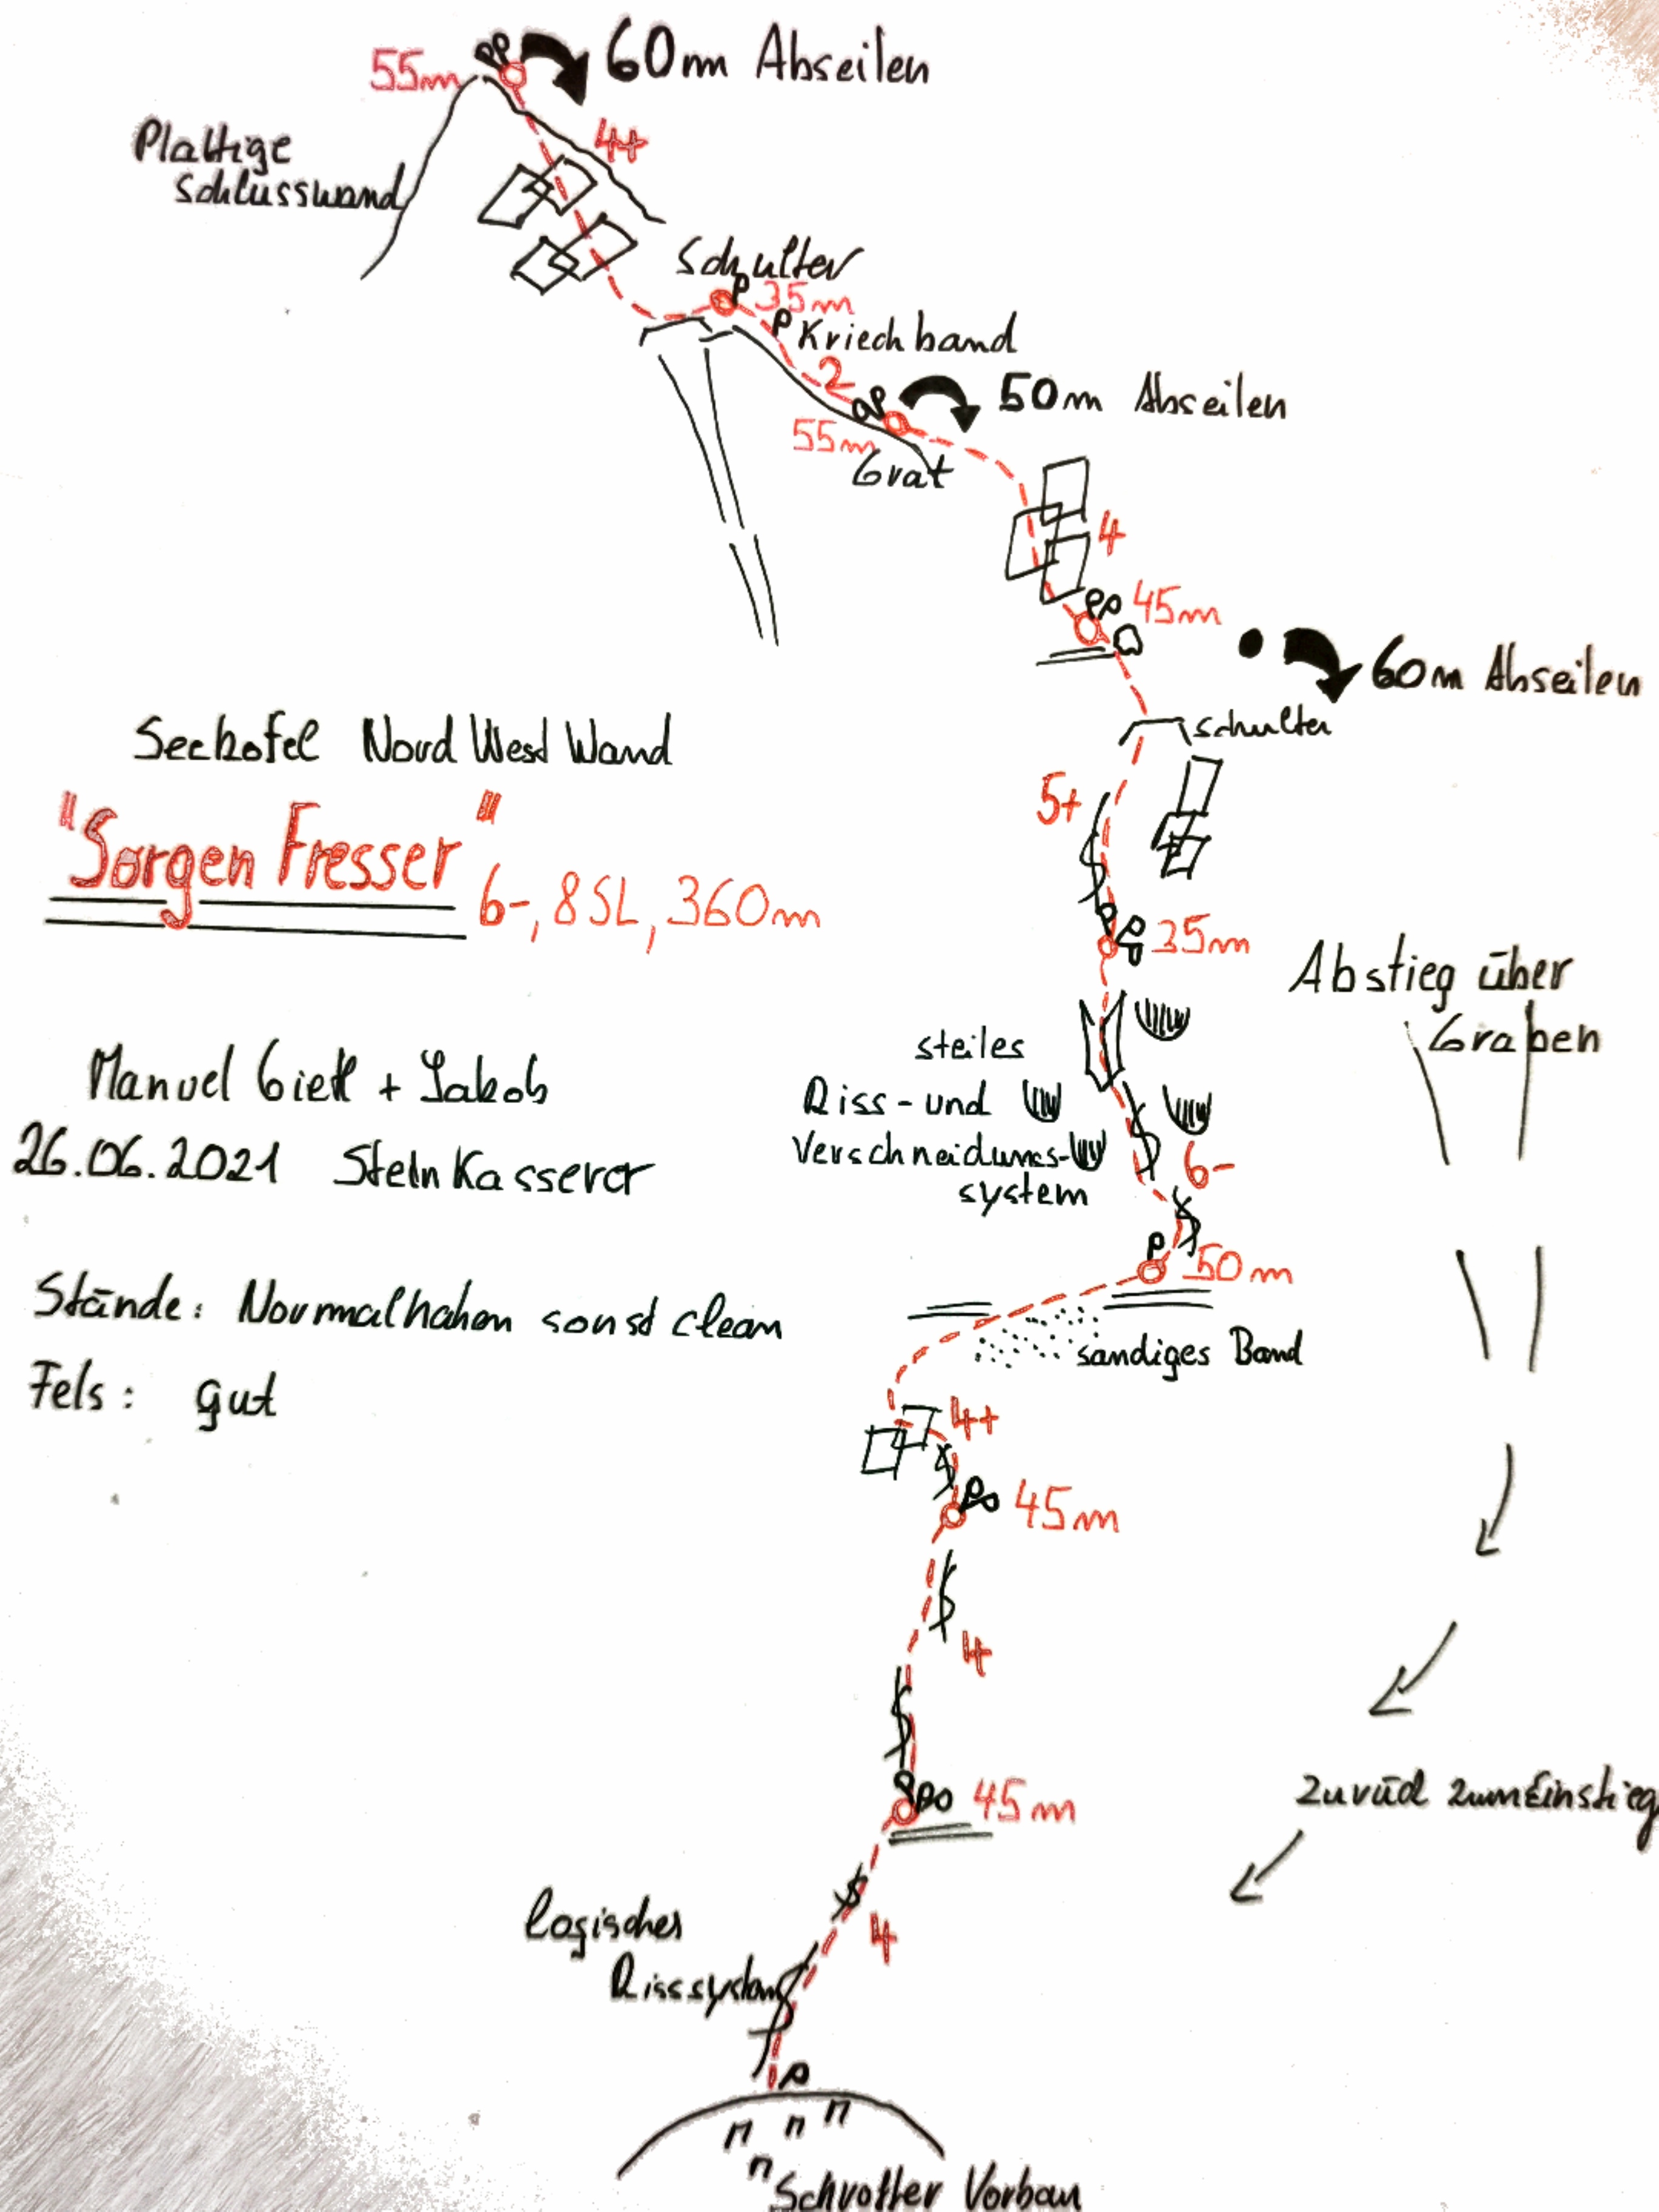 55m
60m Abseilen
Plattige
Schlusswand
4+
Schulter
35m
Kriechband
2
50m Abseilen
55m
Grat
4
45m
60m Abseilen
Schulter
Seekofel Nord West Wand
5+
"Sorgen Fresser"
6-, 8SL, 360m
35m
Abstieg über
Graben
steiles
Riss- und
Verschneidungs-
system
6-
Manuel + Jakob
26.06.2021 Steinkasserer
50m
Stände: Normalhaken sonst clean
sandiges Band
Fels: gut
4+
45m
4
45m
zurück zum Einstieg
logisches
Risssystem
4
Schrofler Vorbau